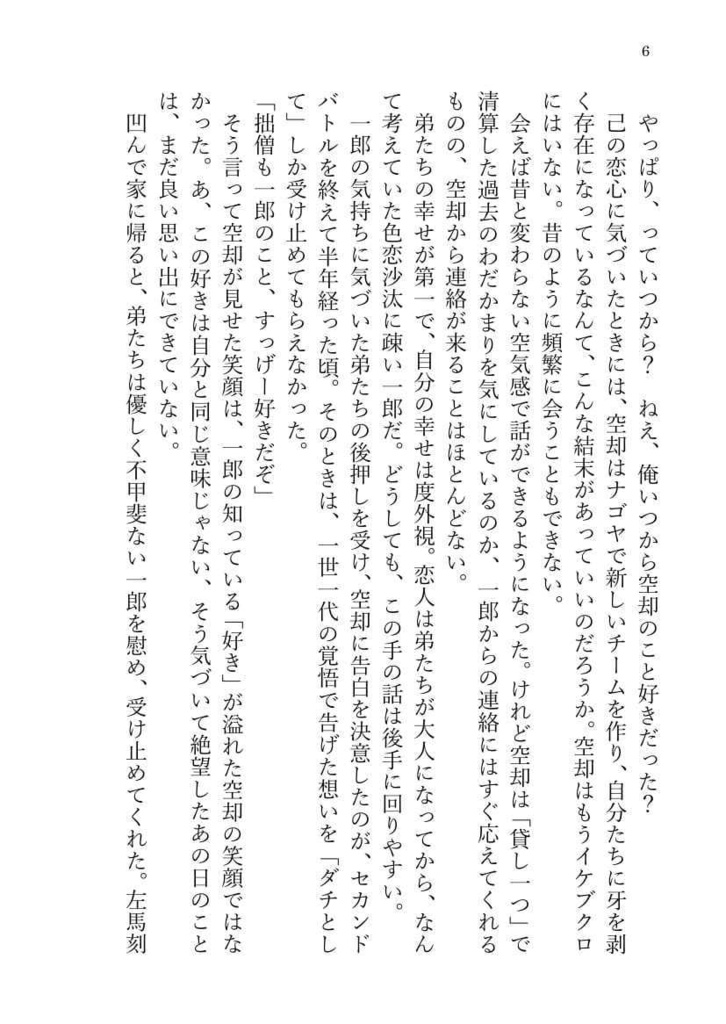 6
やっぱり、っていつから？　ねえ、俺いつから空却のこと好きだった？
己の恋心に気づいたときには、空却はナゴヤで新しいチームを作り、自分たちに牙を剥
く存在になっているなんて、こんな結末があっていいのだろうか。空却はもうイケブクロ
にはいない。昔のように頻繁に会うこともできない。
会えば昔と変わらない空気感で話ができるようになった。けれど空却は「貸し一つ」で
清算した過去のわだかまりを気にしているのか、一郎からの連絡にはすぐ応えてくれる
ものの、空却から連絡が来ることはほとんどない。
弟たちの幸せが第一で、自分の幸せは度外視。恋人は弟たちが大人になってから、なん
て考えていた色恋沙汰に疎い一郎だ。どうしても、この手の話は後手に回りやすい。
一郎の気持ちに気づいた弟たちの後押しを受け、空却に告白を決意したのが、セカンド
バトルを終えて半年経った頃。そのときは、一世一代の覚悟で告げた想いを「ダチとし
て」しか受け止めてもらえなかった。
「拙僧も一郎のこと、すっげー好きだぞ」
そう言って空却が見せた笑顔は、一郎の知っている「好き」が溢れた空却の笑顔ではな
かった。あ、この好きは自分と同じ意味じゃない、そう気づいて絶望したあの日のこと
は、まだ良い思い出にできていない。
凹んで家に帰ると、弟たちは優しく不甲斐ない一郎を慰め、受け止めてくれた。左馬刻